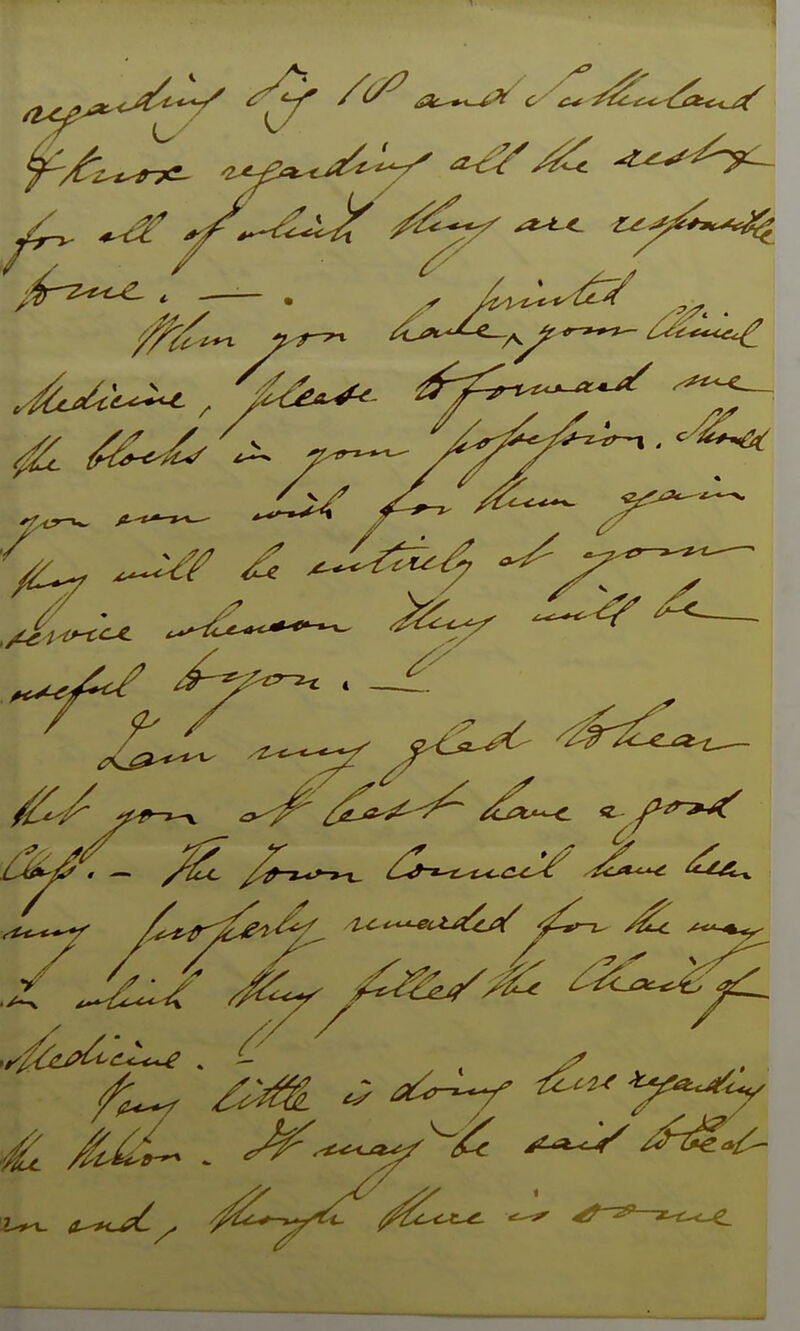 regarding Dr 10 and Sutherland
& Knox regarding all the rest, &
for all of which they are responsible
to me. —.
When you have printed your Clinical
Medicine, please to forward me
the blocks in your possession. Should
you ever wish for them again
they will be entirely at your
service whenever they will be
useful to you. —
I am very glad to hear
that you at last have a good
Chap. — The Town Council have been
very properly rewarded for the way
in which they filled the Chair of
Medicine. —
Very little is doing here regarding
the Election. It may be said to be at
an end, though there is some